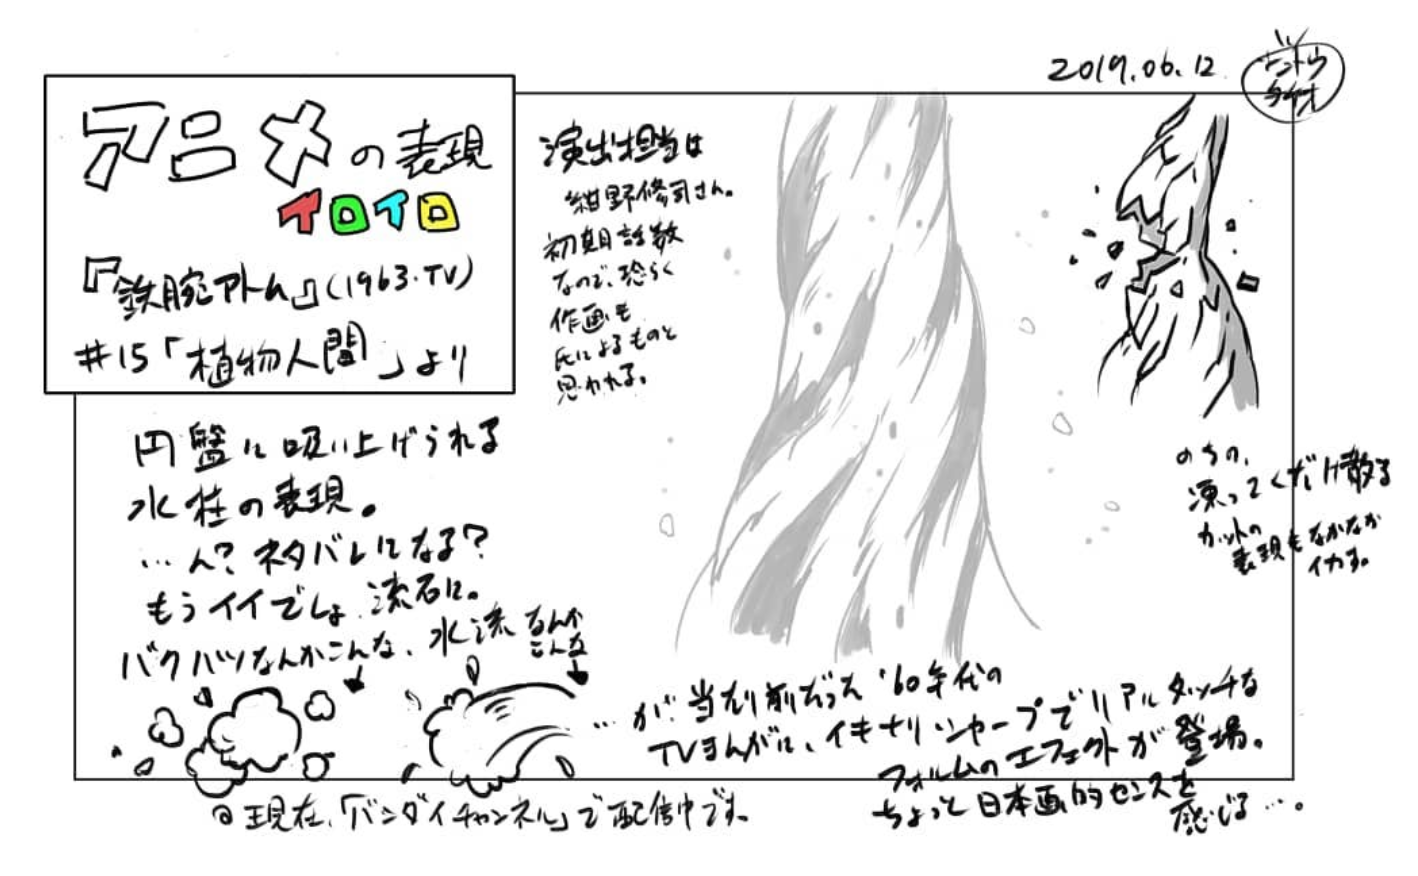 アニメの表現
イロイロ
『鉄腕アトム』(1963・TV)
#15「植物人間」より
2019.06.12
演出担当は
紺野修司さん。
初期話数
なので、恐らく
作画も
氏によるものと
思われる。
円盤に吸い上げられる
水柱の表現。
…ん?ネタバレになる?
もうイイでしょ 流石に。
バクハツなんかこんな、水流なんか
こんな
のちの、
凍ってくだけ散る
カットの
表現もなかなか
イカす。
…が当たり前だった '60年代の
TVまんがに、イキナリシャープでリアルタッチな
フォルムのエフェクトが登場。
ちょっと日本画的センスを
感じる…。
@現在、「バンダイチャンネル」で配信中です。